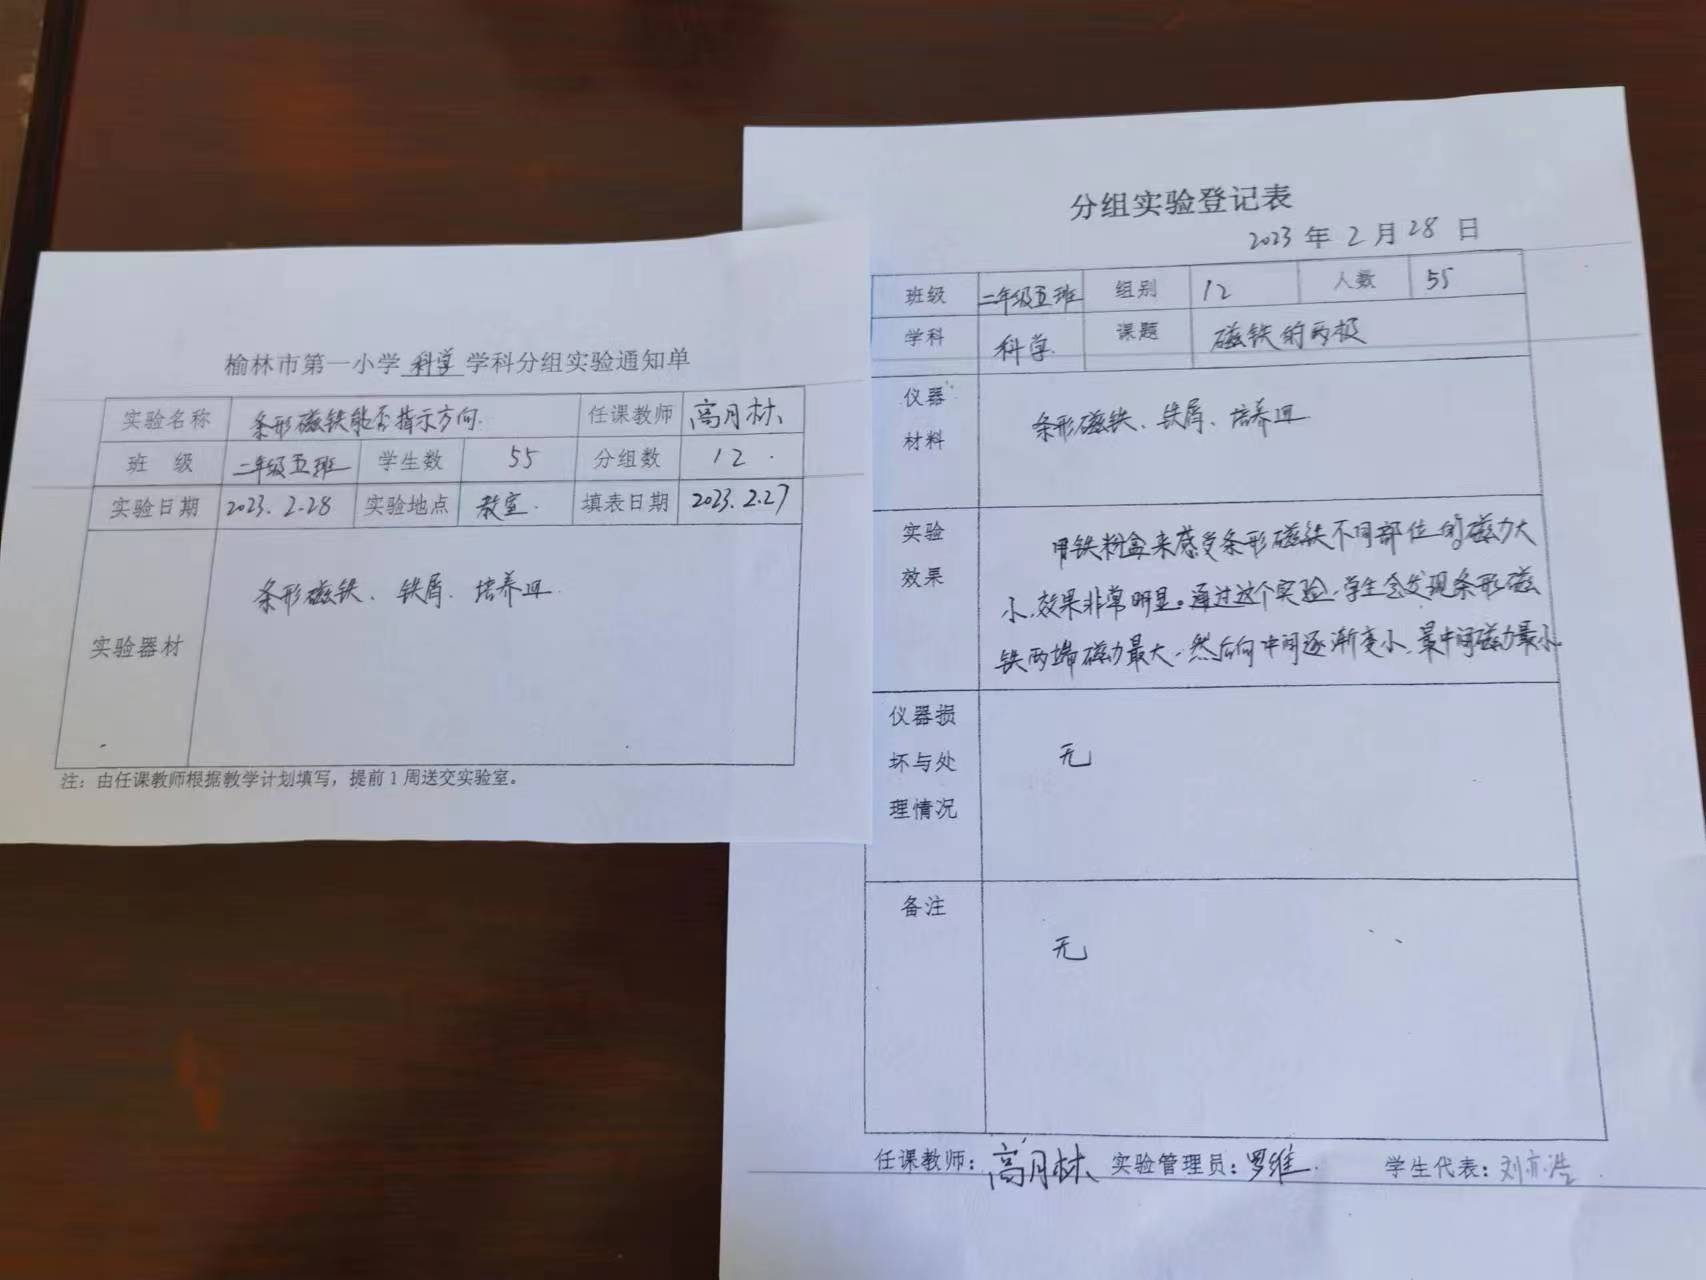 榆林市第一小学 科学 学科分组实验通知单
实验名称 条形磁铁能否指示方向. 任课教师 高月林
班 级 二年级五班 学生数 55 分组数 12
实验日期 2023.2.28 实验地点 教室. 填表日期 2023.2.27
实验器材 条形磁铁、铁屑、培养皿.
注：由任课教师根据教学计划填写，提前1周送交实验室。
分组实验登记表
2023 年 2 月 28 日
班级 二年级五班 组别 12 人数 55
学科 科学. 课题 磁铁的两极
仪器
材料
条形磁铁、铁屑、培养皿
实验
效果
用铁粉盒来感受条形磁铁不同部位的磁力大
小.效果非常明显。通过这个实验.学生会发现条形磁
铁两端磁力最大.然后向中间逐渐变小.最中间磁力最小.
仪器损
坏与处
理情况
无
备注
无
任课教师：高月林 实验管理员：罗维. 学生代表：刘亦浩.